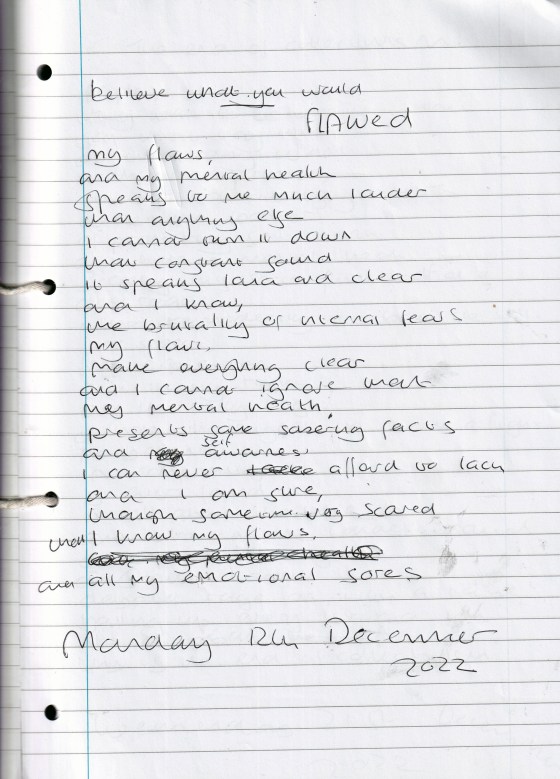 believe what you would
FLAWED
my flaws,
and my mental health
speaks to me much louder
than anything else
I cannot turn it down
that constant sound
it speaks loud and clear
and I know,
the brutality of internal fears
my flaws,
make everything clear
and I cannot ignore what
my mental health,
presents some sobering facts
and self awarnes
I can never afford to lack
and I am sure,
though sometimes very scared
that I know my flaws,
and all my emotional sores
Monday 12th December
2022